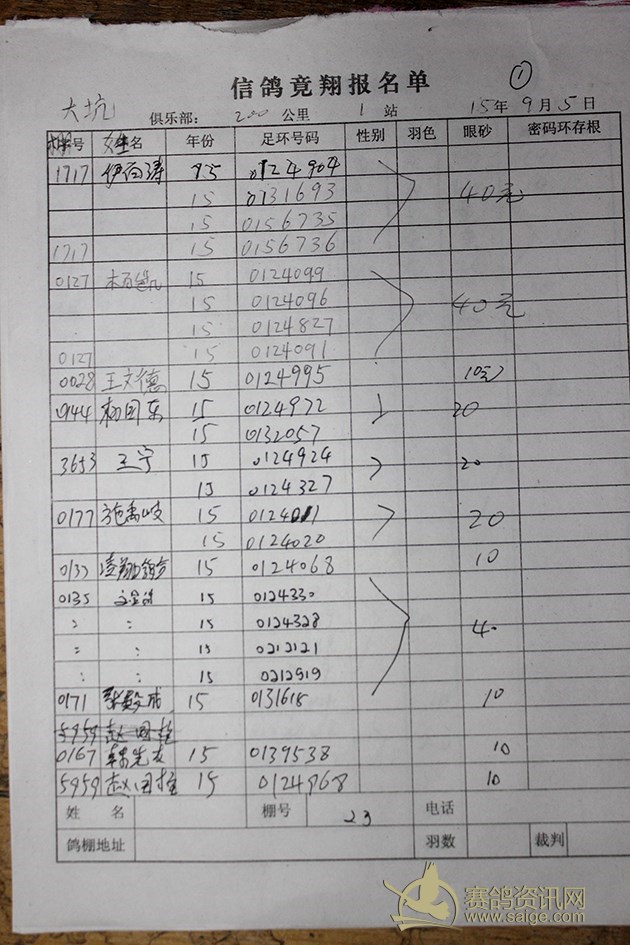 信鸽竟翔报名单 ①
大坑 俱乐部： 200 公里 1 站 15年 9月 5日
棚号 姓名 年份 足环号码 性别 羽色 眼砂 密码环存根
1717 15 0124904
15 0131693 40元
15 0156735
1717 15 0156736
0127 15 0124099
15 0124096 40元
15 0124827
0127 15 0124091
0028 王文德 15 0124995 10元
0144 杨国东 15 0124972 20
15 0132057
3653 王宁 15 0124924 20
15 0124327
0177 施禹岐 15 20
15 0124020
15 0124068 10
0135 15 0124330
: : 15 0124328 40
: : 15 0212121
: : 15 0212919
0171 15 0131618 10
5959 赵国
0167 15 0139538 10
5959 赵国 15 0124968 10
姓名 棚号 23 电话
鸽棚地址 羽数 裁判
赛鸽资讯网
www.saige.com